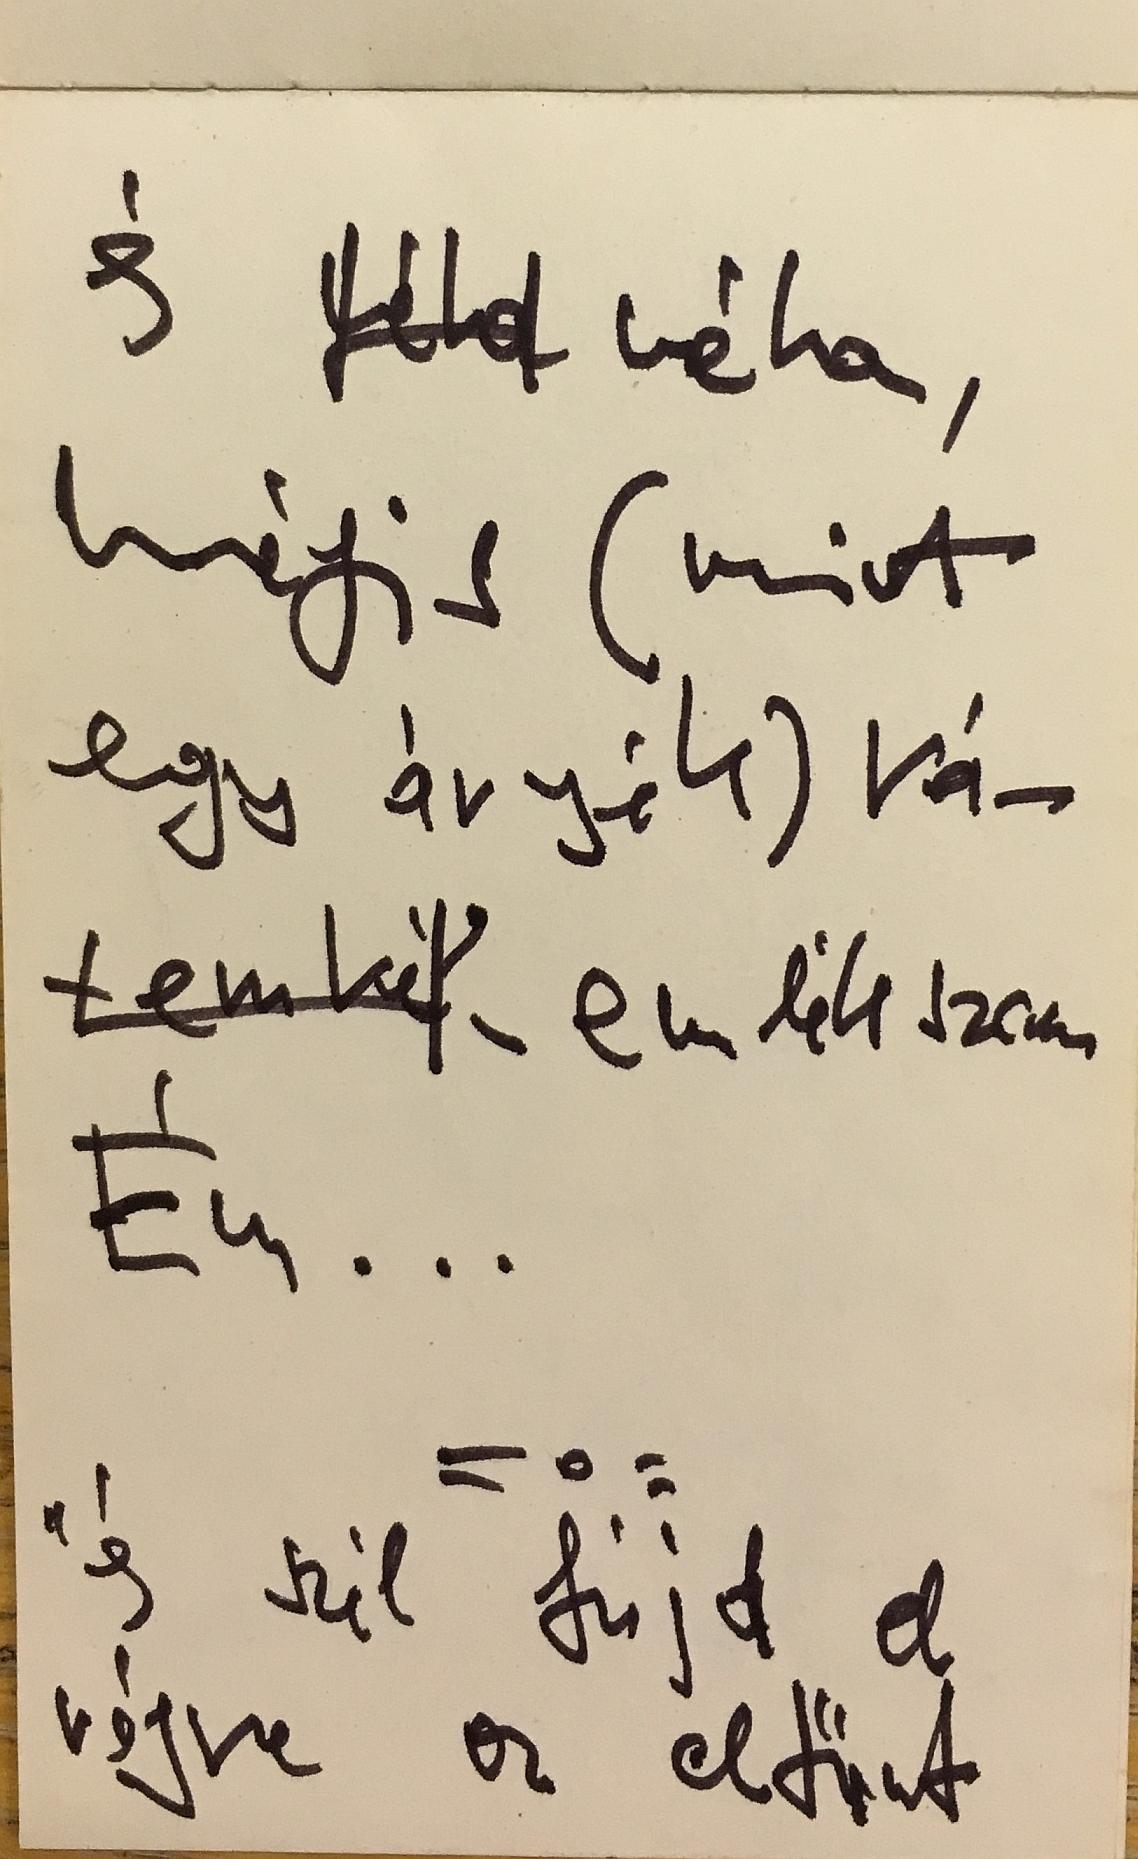 és néha,
mégis (mint
egy árnyék) rá-
tekint emlékszem
Én...
"és szél fújd el
végre az eltűnt